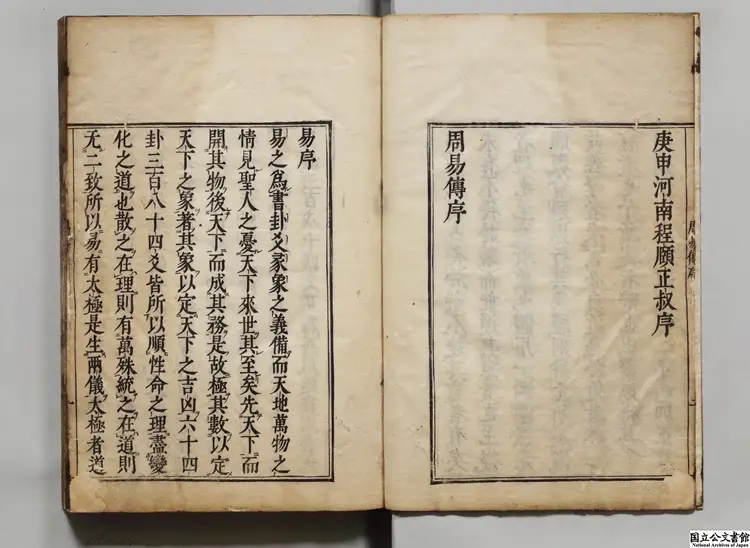 庚申河南程頤正叔序
周易傳序
周易傳序
易序
易之爲書卦爻彖象之義備而天地萬物之
情見聖人之憂天下來世其至矣先天下而
開其物後天下而成其務是故極其數以定
天下之象著其象以定天下之吉凶六十四
卦三百八十四爻皆所以順性命之理盡變
化之道也散之在理則有萬殊統之在道則
无二致所以易有太極是生兩儀太極者道
国立公文書館
National Archives of Japan